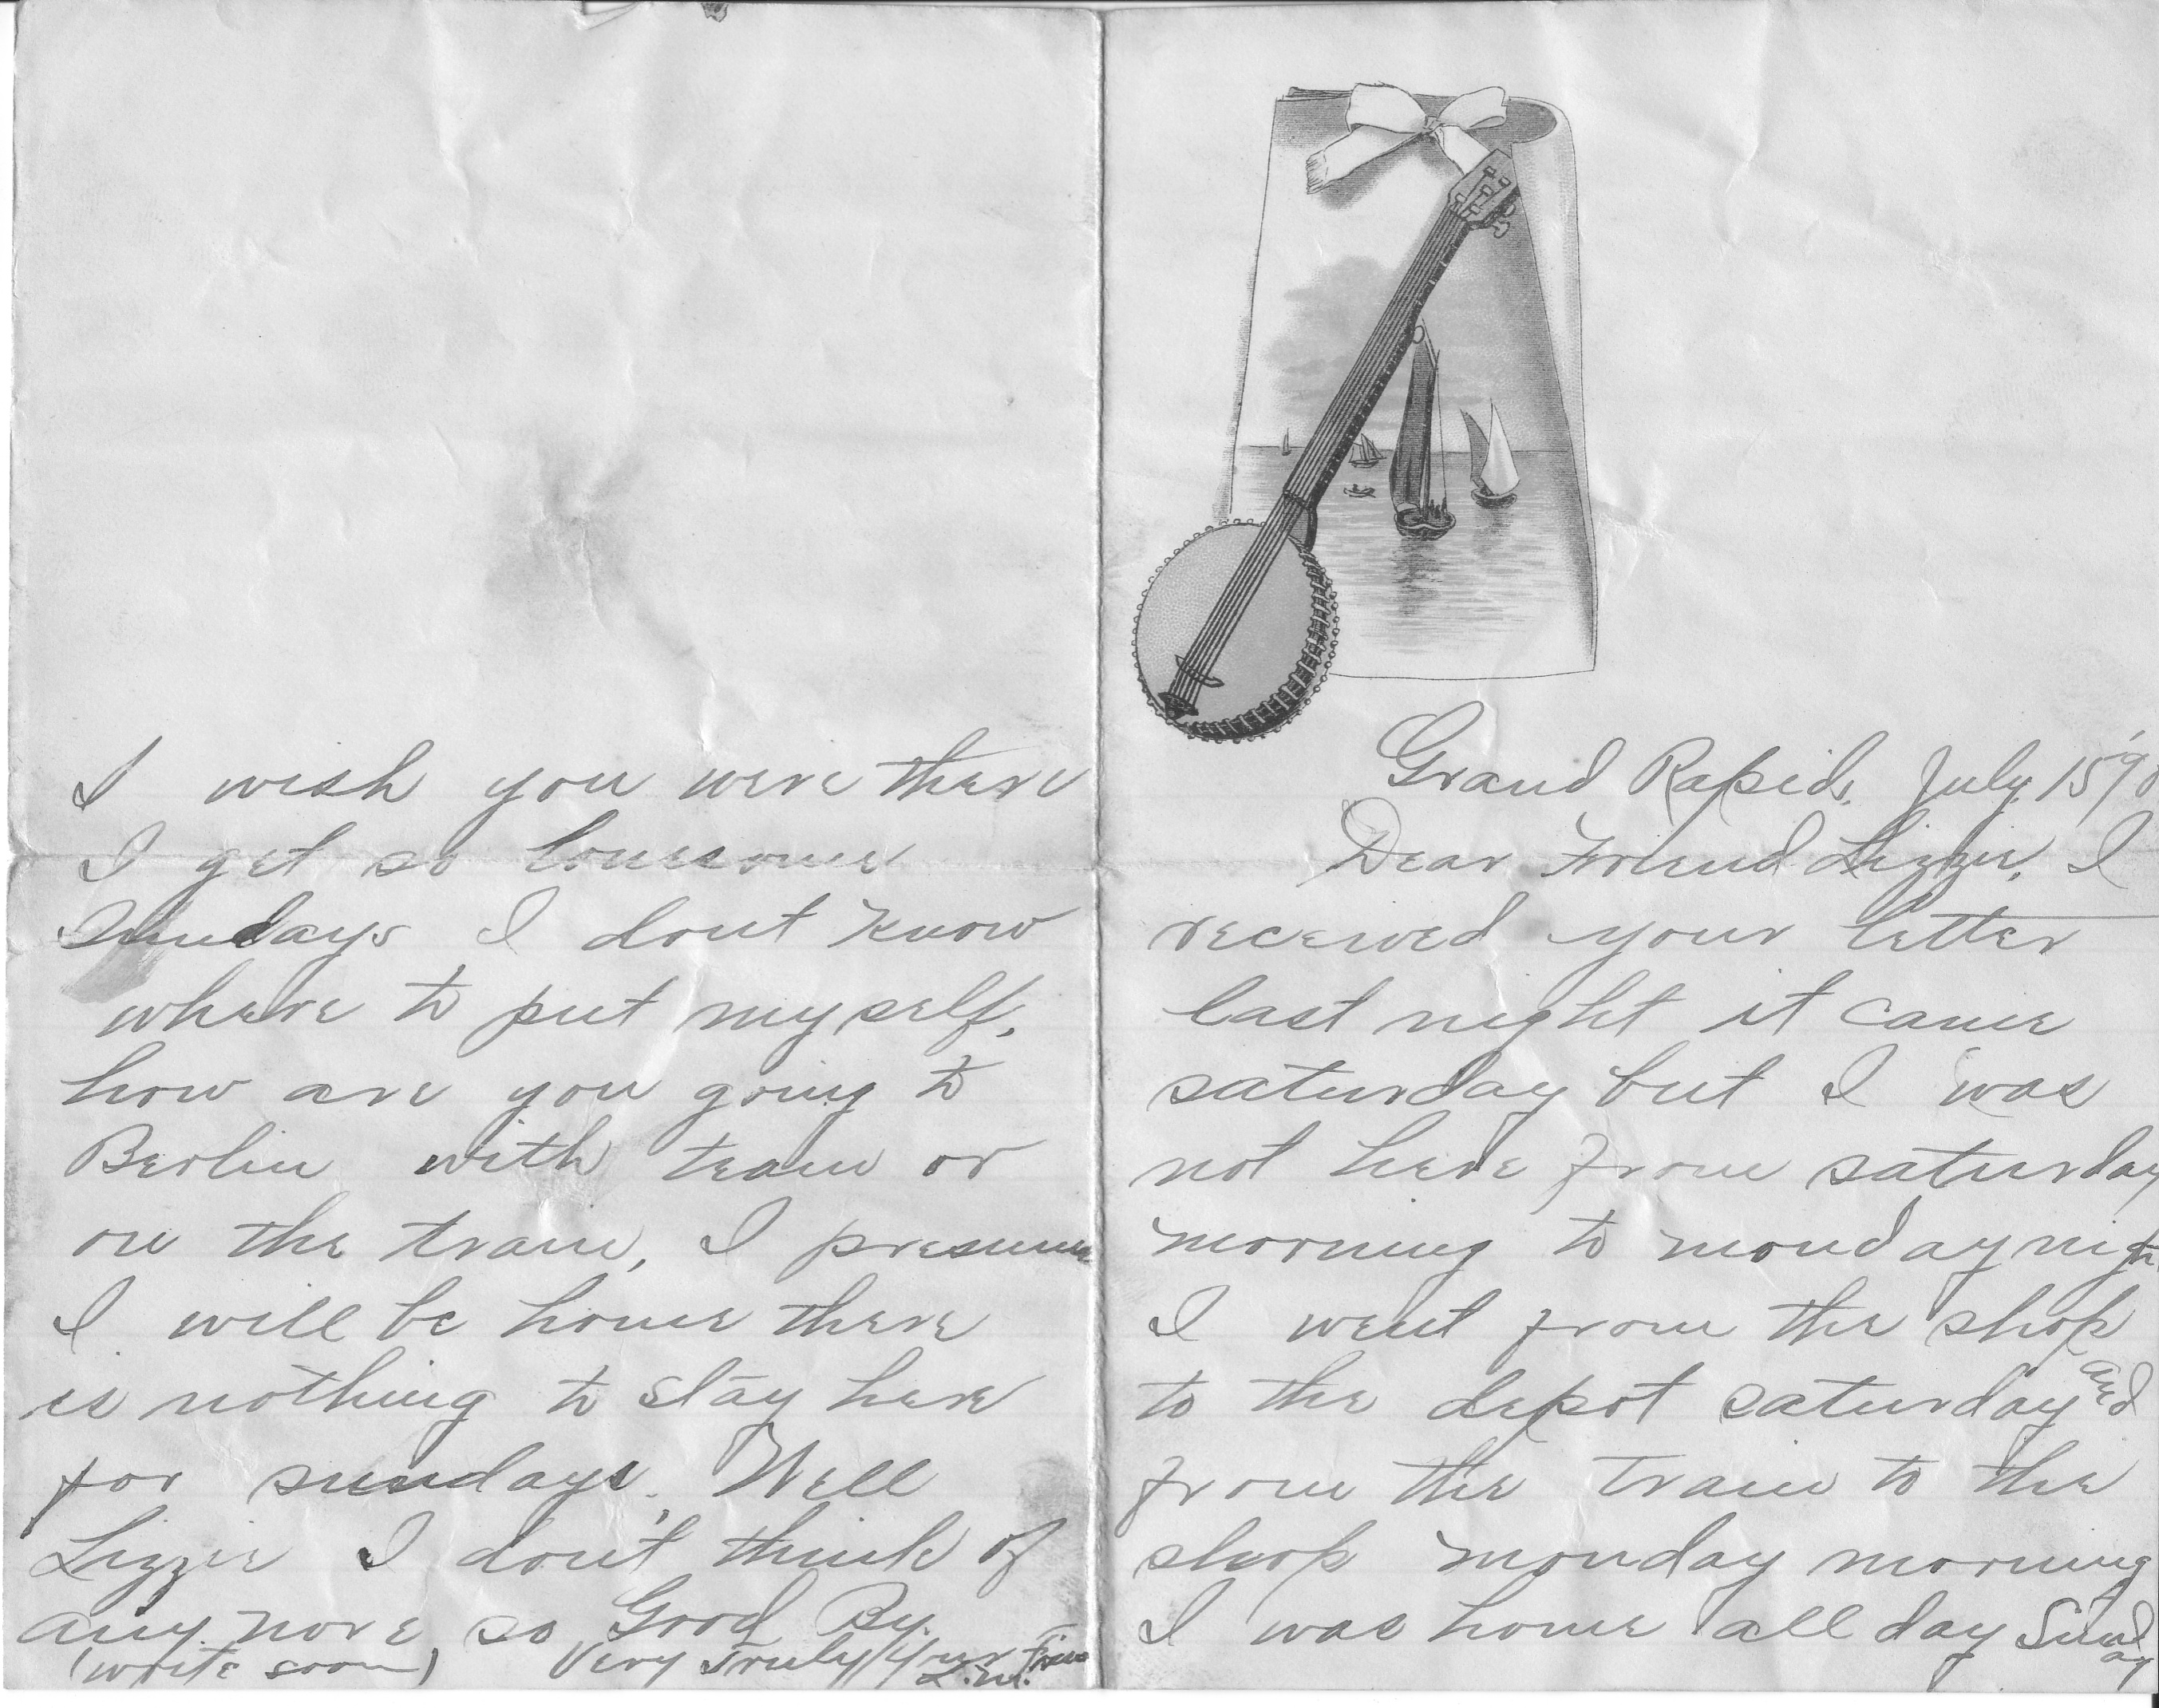 Grand Rapids, July, 15 '90
Dear Friend Lizzie, I
received your letter
last night it came
saturday but I was
not here from saturday
morning to monday night
I went from the shop
to the depot saturday and
from the train to the
shop monday morning
I was home all day Sunday
I wish you were there
I get so lonesome
Sundays I dont know
where to put myself,
how are you going to
Berlin with team or
on the train, I presume
I will be home there
is nothing to stay here
for sundays. Well
Lizzie I don't think of
any more so Good By.
(write soon) Very Truly Your
L.M.